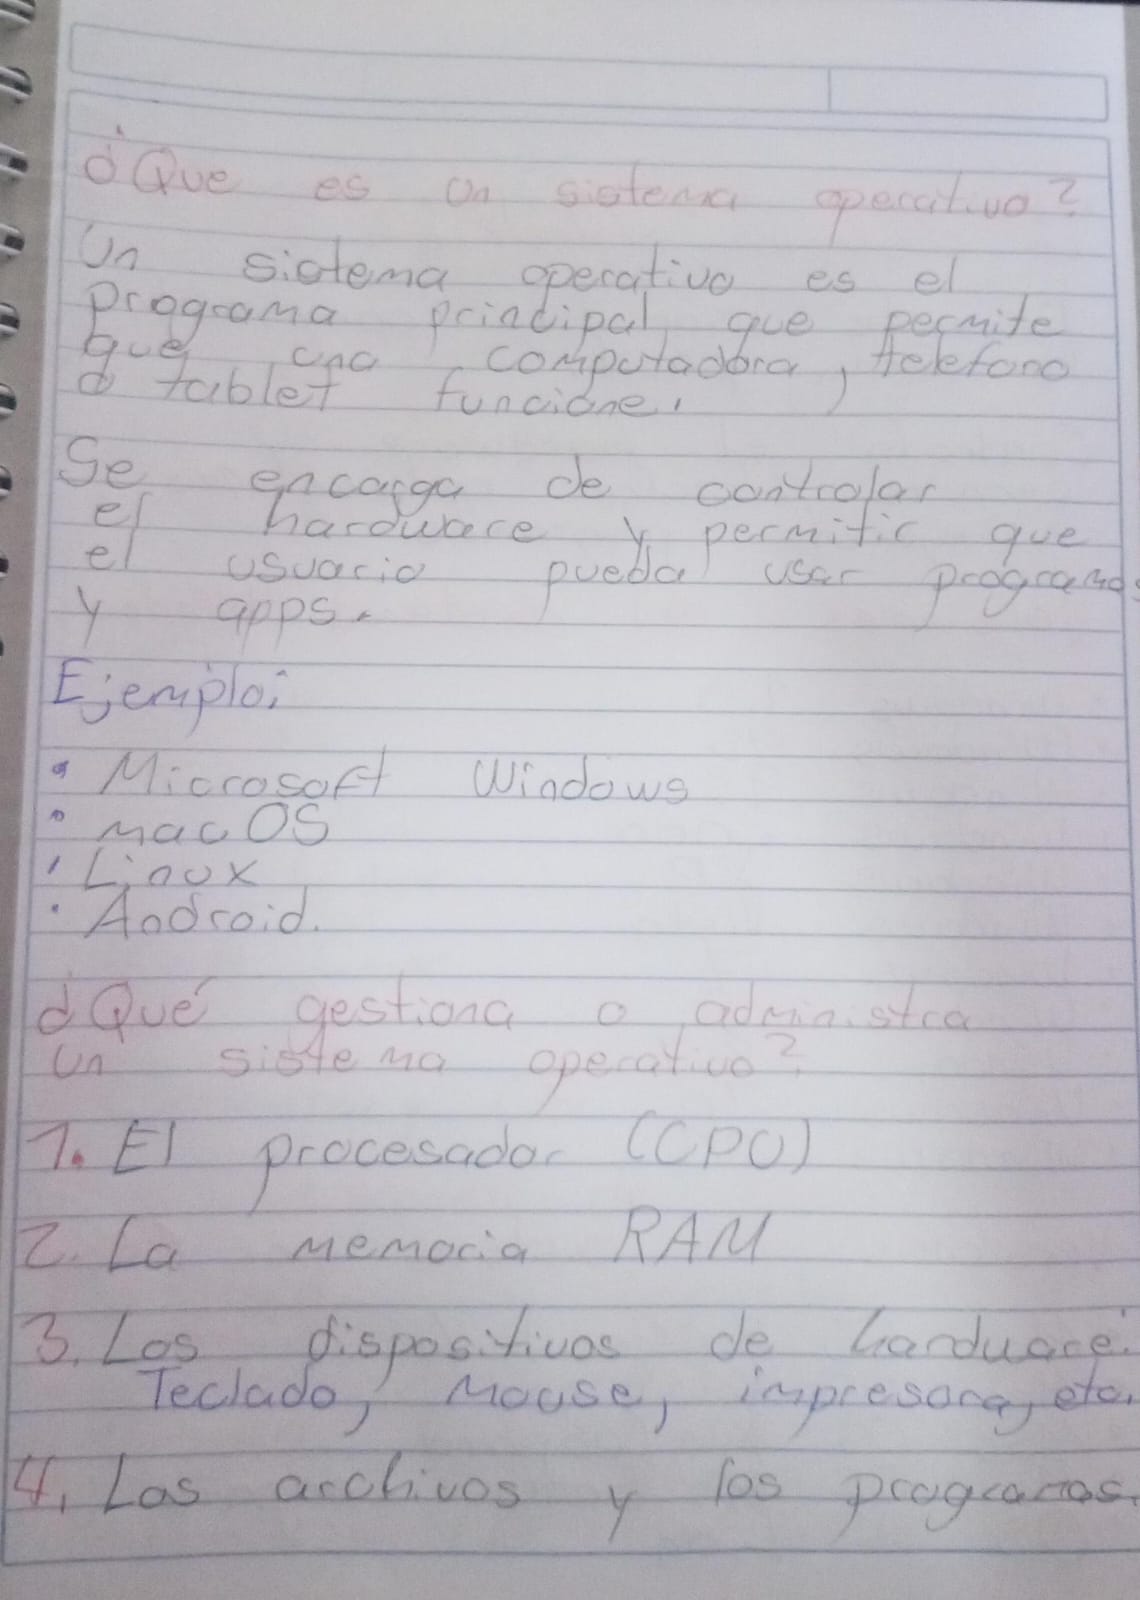 ¿Que es un sistema operativo?
Un sistema operativo es el
programa principal que permite
que una computadora, telefono
o tablet funcione.
Se encarga de controlar
el hardware y permitir que
el usuario pueda usar programas
y apps.
Ejemplo:
• Microsoft Windows
• mac OS
• Linux
• Android.
¿Qué gestiona o administra
un sistema operativo?
1. El procesador (CPU)
2. La memoria RAM
3. Los dispositivos de harduare:
Teclado, mouse, impresora, etc.
4. Los archivos y los programas.